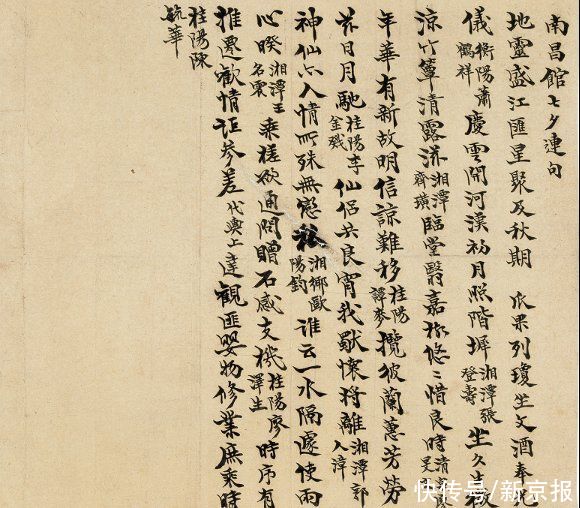 南昌館七夕連句
地靈盛江匯星聚及秋期瓜果列瓊坐文酒奉
儀衡陽蕭鶴祥慶雲開河漢初月照階墀湘潭張登壽坐久
涼竹簟清露湘潭齊璜臨堂翳嘉悠〻惜良時清
年華有新故明信諒難移桂陽譚攬彼蘭蕙芳勞
茲日月馳桂陽李金仙侶共良宵我歌懷將離湘潭郭人漳
神仙亦人情所殊無戀私湘鄉歐陽鈞誰云一水隔遂使兩
心暌湘潭王名震乘槎欲通問贈石感支機桂陽廖澤生時序有
推遷歡情詎參差代輿上達觀匪嬰物修業庶乘時
桂陽陳毓華
快传号/新京报